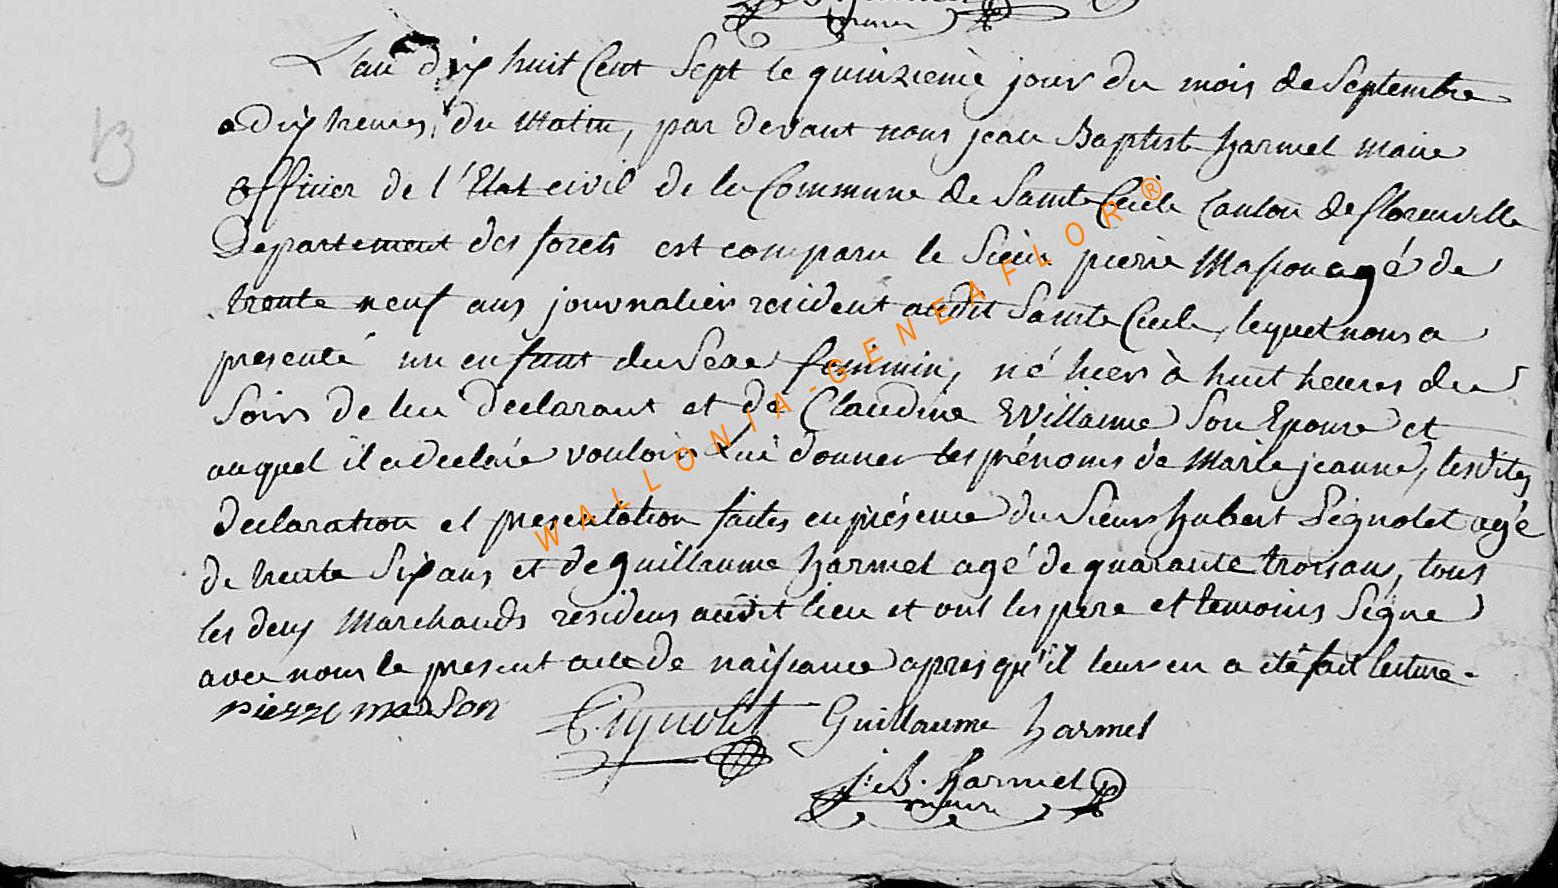 maire
L'an dix huit Cent Sept le quinzieme jour du mois de Septembre
a dix heures, du Matin, par devant nous jean Baptist harmel maire
officier de l'Etat civil de la Commune de Sainte Cecile Canton de florenville
Departement des forets est comparu le Sieur pierre Masson agé de
trente neuf ans journalier resident audit Sainte Cecile, lequel nous a
presenté un enfant du Sexe feminin, né hier à huit heures du
Soir de lui declarant et de Claudine Willaume Son Epouse et
auquel il a declaré vouloir lui donner les prénoms de Marie jeanne, lesdites
declaration et presentation faites en présence du Sieur hubert Pignolet agé
de trente Six ans et de guillaume harmel agé de quarante trois ans, tous
les deux Marchands residens audit lieu et ont les pere et temoins Signé
avec nous le present acte de naissance apres qu'il leur en a été fait lecture.
pierre masson Pignolet Guillaume harmel
J. B. harmel
maire
13
WALLONIA-GENEAFLOR®